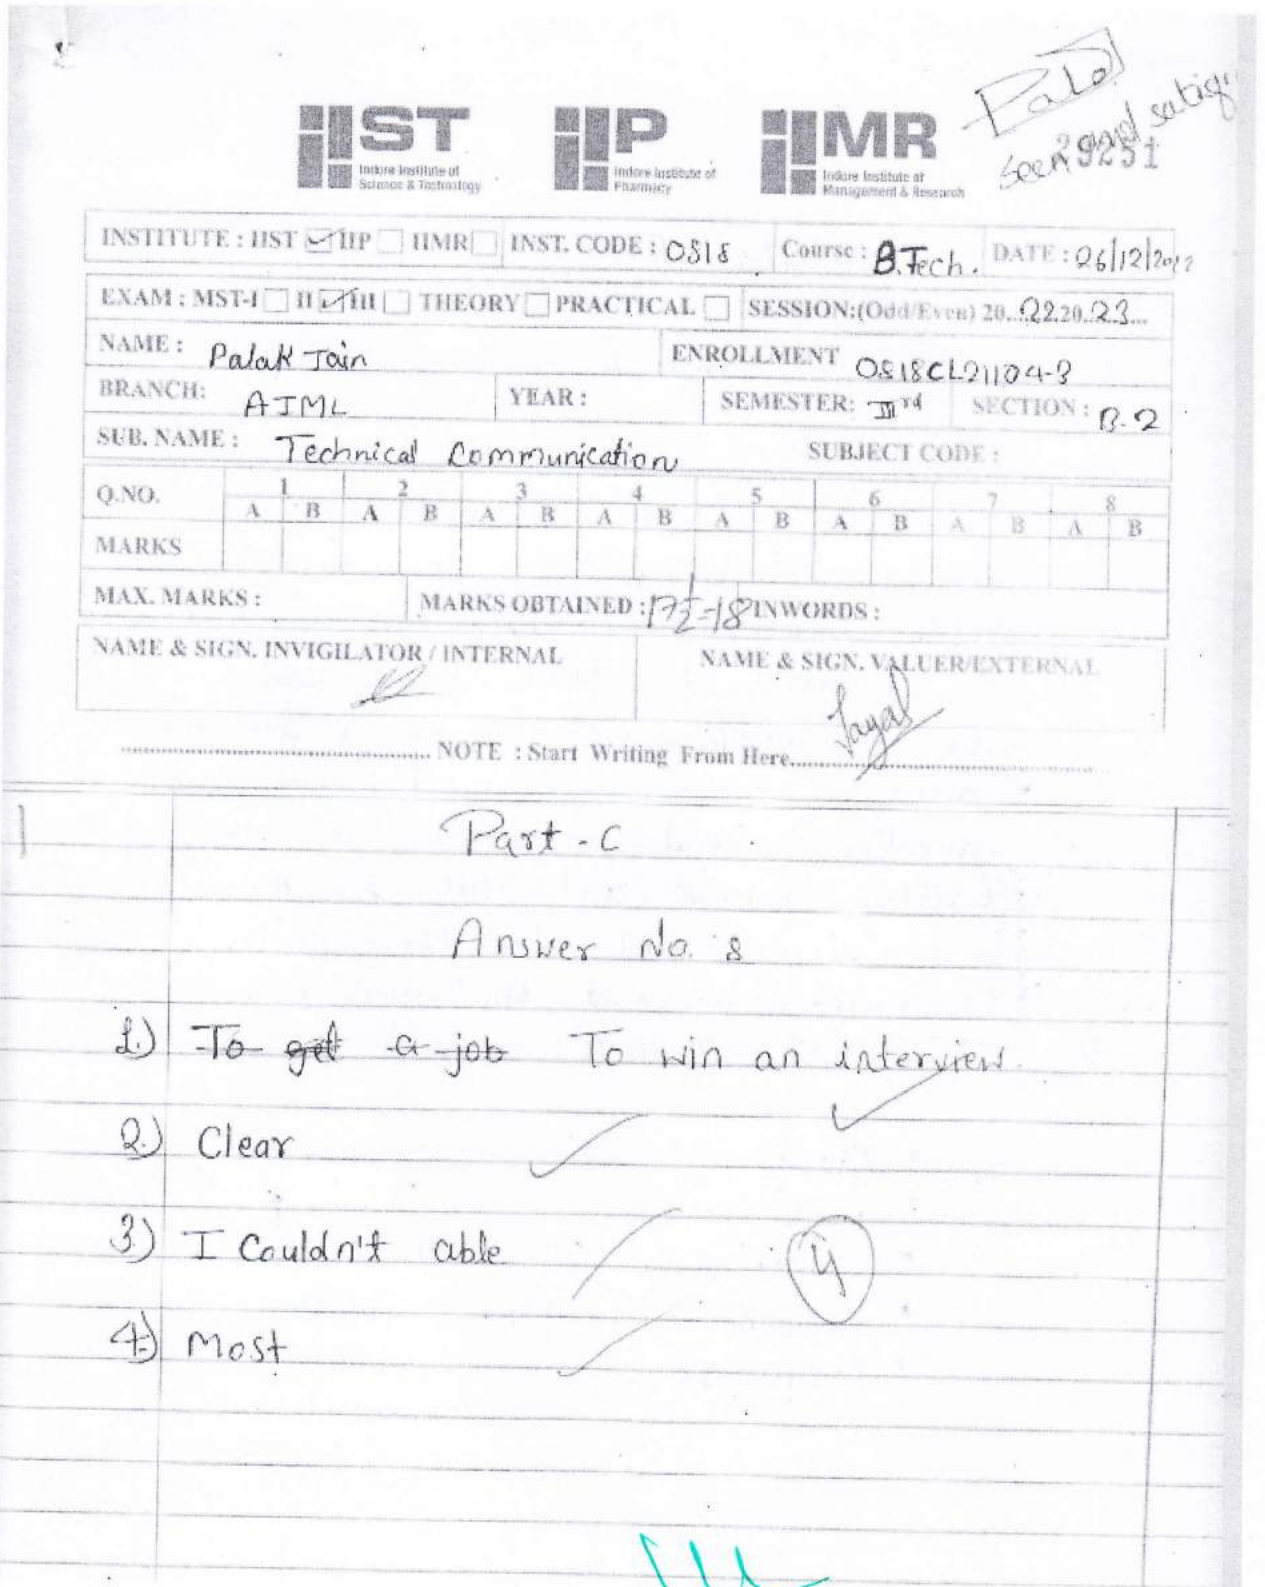 Palak
Seen and satisfied
29251
IIST
Indore Institute of
Science & Technology
IIP
Indore Institute of
Pharmacy
IIMR
Indore Institute of
Management & Research
INSTITUTE : IIST IIP IIMR INST. CODE : 0818 Course : B.Tech. DATE : 26/12/2022
EXAM : MST-I II III THEORY PRACTICAL SESSION:(Odd/Even) 20..22.20..23...
NAME : Palak Jain ENROLLMENT 0818CL211043
BRANCH: AIML YEAR : SEMESTER: IIIrd SECTION : B-2
SUB. NAME : Technical Communication SUBJECT CODE :
Q.NO. 1 2 3 4 5 6 7 8
A B A B A B A B A B A B A B A B
MARKS
MAX. MARKS : MARKS OBTAINED : 17½-18 INWORDS :
NAME & SIGN. INVIGILATOR / INTERNAL NAME & SIGN. VALUER/EXTERNAL
NOTE : Start Writing From Here
Part - C
Answer No. 8
1.) To get a job To win an interview
2.) Clear
3.) I Couldn't able
4
4.) Most